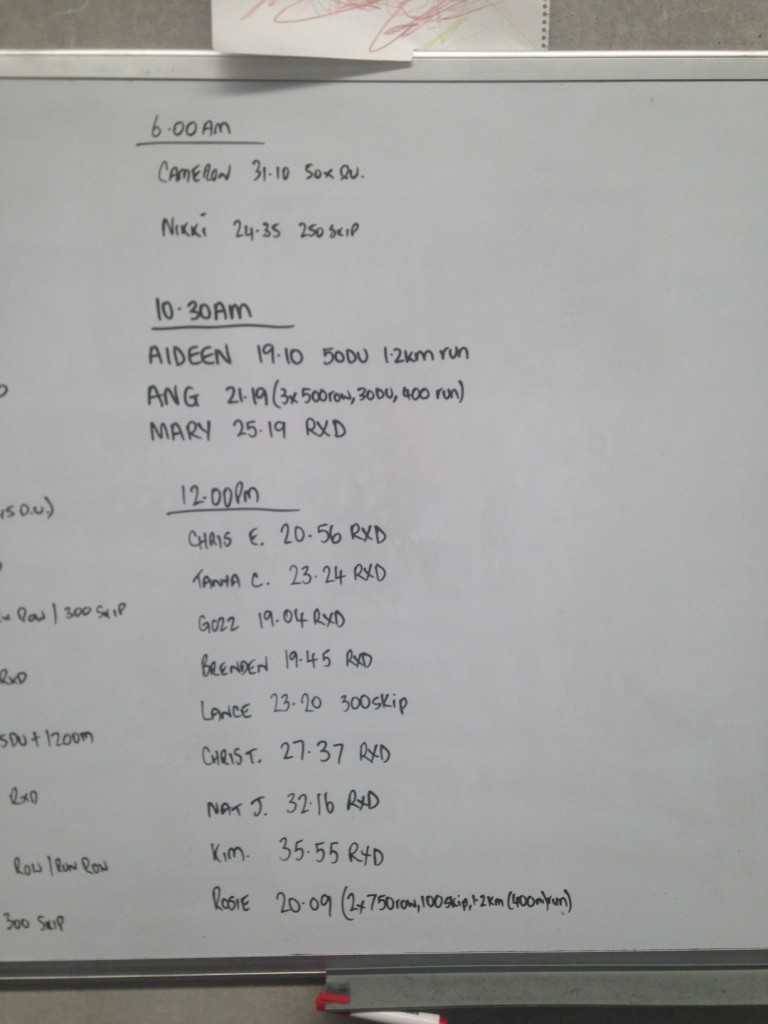 6.00AM
CAMERON 31.10 50x DU.
NIKKI 24.35 250 SKIP
10.30AM
AIDEEN 19.10 50DU 1.2km run
ANG 21.19 (3x 500row, 30DU, 400 run)
MARY 25.19 RXD
12.00PM
CHRIS E. 20.56 RXD
TANYA C. 23.24 RXD
GOZZ 19.04 RXD
BRENDEN 19.45 RXD
LANCE 23.20 300skip
CHRIS T. 27.37 RXD
NAT J. 32.16 RXD
KIM. 35.55 RXD
ROSIE 20.09 (2x750row, 100skip, 1.2km (400m)run)
D.U.)
Row / 300 SKIP
RXD
5DU + 1200m
RXD
ROW / RUN ROW
300 SKIP